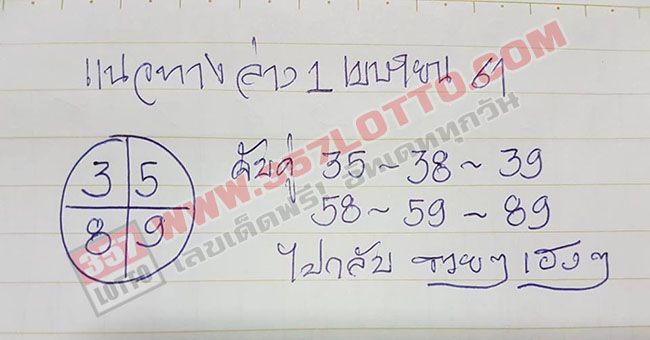 แนวทาง ล่าง 1 เมษายน 61
3 5
8 9
จับคู่ 35 ~ 38 ~ 39
58 ~ 59 ~ 89
ไปกลับ รวยๆ เฮงๆ
WWW.357LOTTO.COM
เลขเด็ดฟรี! อัพเดททุกวัน
357
LOTTO